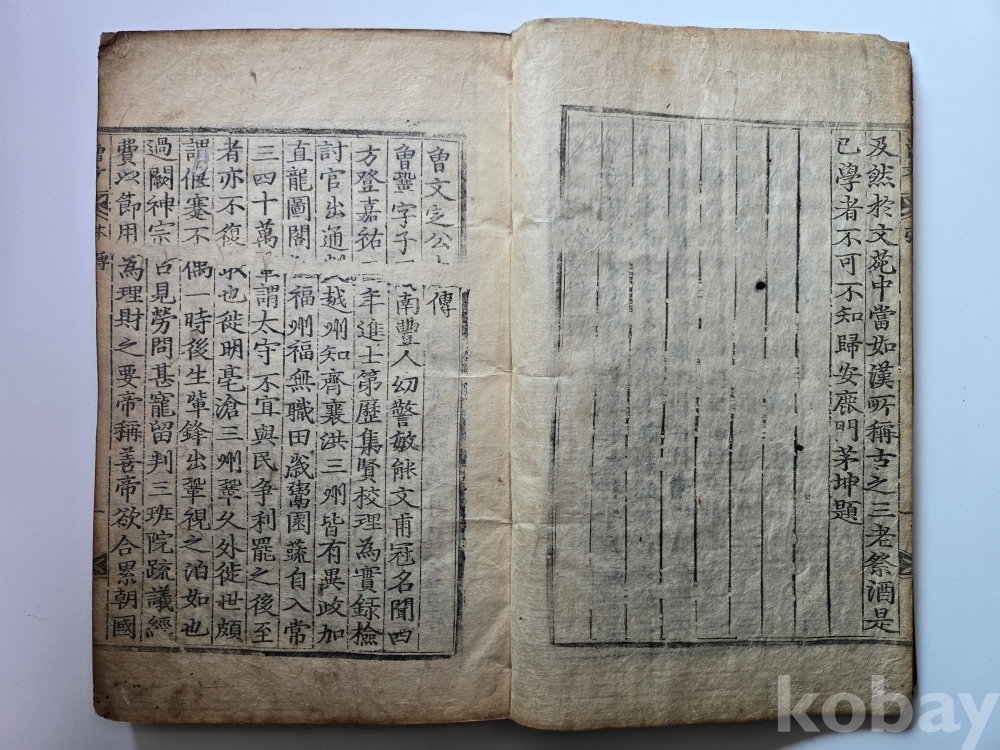 及然於文苑中當如漢所稱古之三老祭酒是
已學者不可不知歸安鹿門茅坤題
曾文定公 傳
曾鞏字子 南豐人幼警敏能文甫冠名聞四
方登嘉祐 年進士第歷集賢校理為實錄檢
討官出通判越州知齊襄洪三州皆有異政加
直龍圖閣 福州福無職田歲鬻園蔬自入常
三四十萬 謂太守不宜與民爭利罷之後至
者亦不復 也徙明亳滄三州鞏久外徙世頗
謂偃蹇不偶一時後生輩鋒出鞏視之泊如也
過闕神宗召見勞問甚寵留判三班院疏議經
費以節用為理財之要帝稱善帝欲合累朝國
本傳
kobay